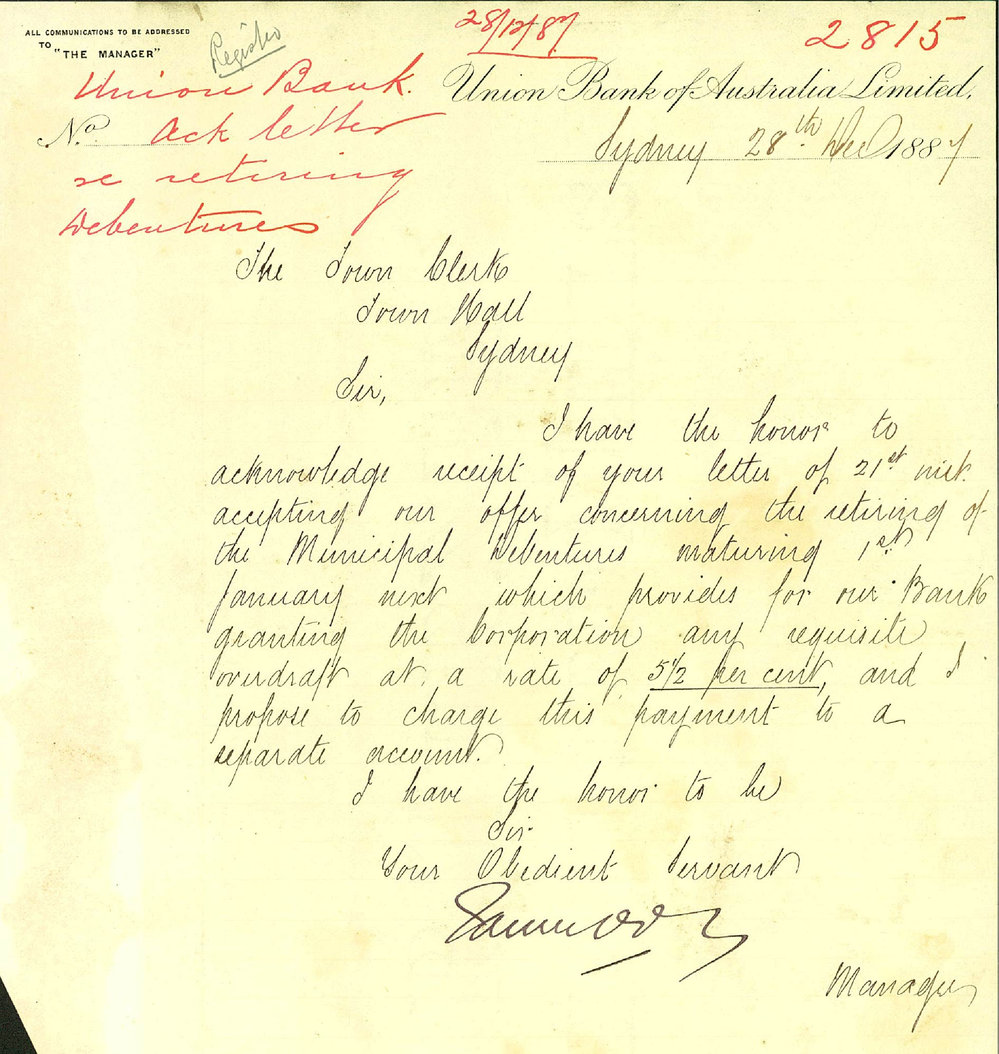 ALL COMMUNICATIONS TO BE ADDRESSED
TO "THE MANAGER"
Register
28/12/87
2815
Union Bank.
Ack letter
re retiring
Debentures
Union Bank of Australia Limited,
No.
Sydney 28th Dec 1887
The Town Clerk
Town Hall
Sydney
Sir,
I have the honor to
acknowledge receipt of your letter of 21st inst.
accepting our offer concerning the retiring of
the Municipal Debentures maturing 1st
January next which provides for our Bank
granting the Corporation any requisite
overdraft at a rate of 5 1/2 per cent, and I
propose to charge this payment to a
separate account.
I have the honor to be
Sir
Your Obedient Servant
Manager